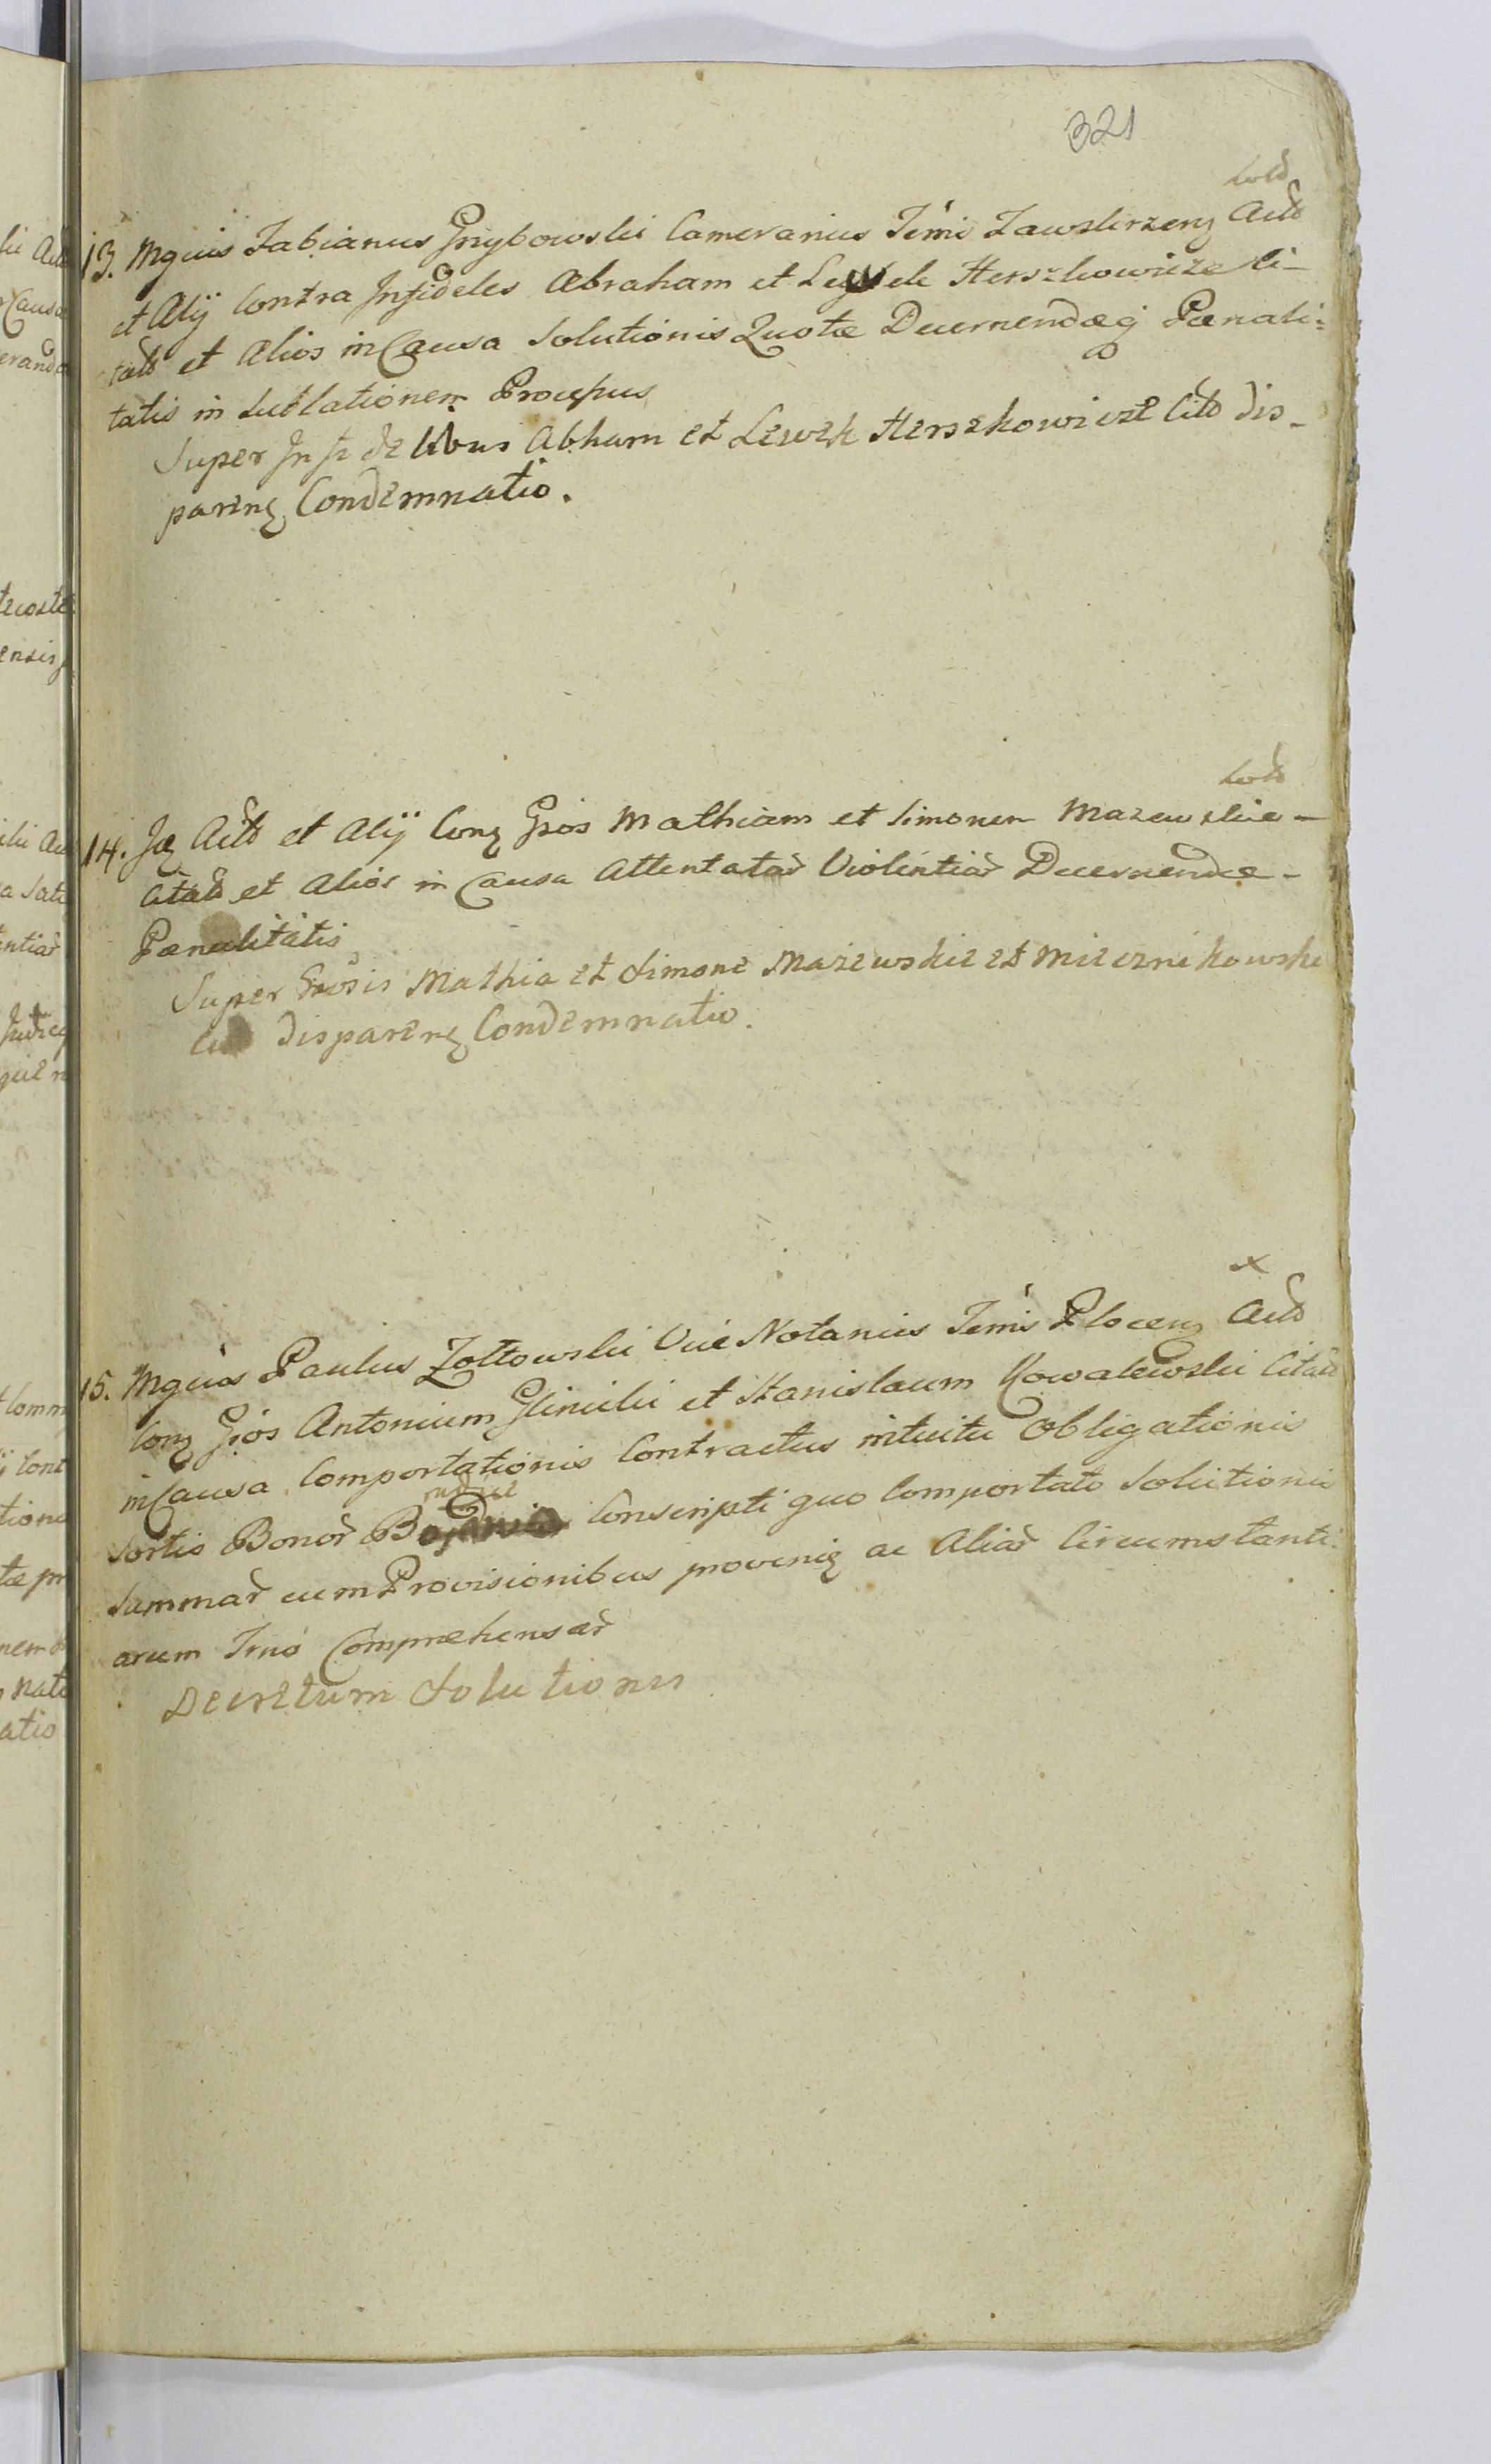 321
Cold
13. Mgcus Fabianus Grzybowski Camerarius Terris Zawskrzeng Actõ
et Alij Contra Infideles Abraham et Lewek Herszkowicze Ci-
tatõ et Alios in Causa Solutionis Quotæ Decernendæq Pænali=
tatis in Sublationem Processus
Super Infidelibus Abham et Lewek Herszkowicze Citõ dis-
pareng Condemnatio.
14. Id Actõ et Alij Cong Gsos Mathiam et Simonem Mazewskie -
Citatõ et Alios in Causa Attentatar Violentiar Decernendæ -
Pænalitatis
Super Gsosis Mathia et Simone Mazewskie et Miecznikowski
Citõ dispareng Condemnatio.
x
15. Mgcus Paulus Zołtowski Vice Notarius Terris Ploceng Actõ
Cong Gsos Antonium Glinicki et Stanislaum Kowalewski Citatõ
in Causa Comportationis Contractus intuitu Obligationis
Sortis Bonor Conscripti quo Comportato Solutionis
Summar cum Provisionibus proveng ac Aliar Circumstanti=
arum Trno Compræhensar
Decretum Solutionis